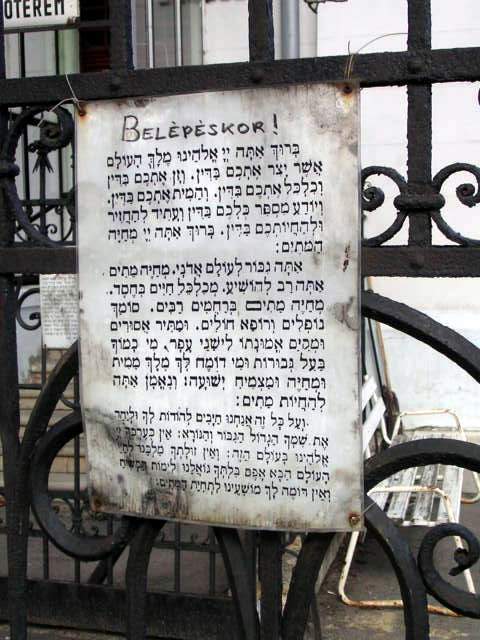 ÓTEREM
BELÈPÈSKOR!
בָּרוּךְ אַתָּה יְיָ אֱלֹהֵינוּ מֶלֶךְ הָעוֹלָם
אֲשֶׁר יָצַר אֶתְכֶם בַּדִּין. וְזָן אֶתְכֶם בַּדִּין
וְכִלְכֵּל אֶתְכֶם בַּדִּין. וְהֵמִית אֶתְכֶם בַּדִּין.
וְיוֹדֵעַ מִסְפַּר כֻּלְּכֶם בַּדִּין וְעָתִיד לְהַחֲזִיר
וּלְהַחֲיוֹתְכֶם בַּדִּין. בָּרוּךְ אַתָּה יְיָ מְחַיֵּה
הַמֵּתִים:
אַתָּה גִּבּוֹר לְעוֹלָם אֲדֹנָי. מְחַיֵּה מֵתִים
אַתָּה רַב לְהוֹשִׁיעַ. מְכַלְכֵּל חַיִּים בְּחֶסֶד.
מְחַיֵּה מֵתִים בְּרַחֲמִים רַבִּים. סוֹמֵךְ
נוֹפְלִים וְרוֹפֵא חוֹלִים. וּמַתִּיר אֲסוּרִים
וּמְקַיֵּם אֱמוּנָתוֹ לִישֵׁנֵי עָפָר. מִי כָמוֹךָ
בַּעַל גְּבוּרוֹת וּמִי דוֹמֶה לָּךְ מֶלֶךְ מֵמִית
וּמְחַיֶּה וּמַצְמִיחַ יְשׁוּעָה: וְנֶאֱמָן אַתָּה
לְהַחֲיוֹת מֵתִים:
וְעַל כָּל זֶה אֲנַחְנוּ חַיָּבִים לְהוֹדוֹת לָךְ וּלְיַחֵד
אֶת שִׁמְךָ הַגָּדוֹל הַגִּבּוֹר וְהַנּוֹרָא: אֵין כְּעֶרְכְּךָ יְיָ
אֱלֹהֵינוּ בָּעוֹלָם הַזֶּה: וְאֵין זוּלָתְךָ מַלְכֵּנוּ לְחַיֵּי
הָעוֹלָם הַבָּא אֶפֶס בִּלְתְּךָ גּוֹאֲלֵנוּ לִימוֹת הַמָּשִׁיחַ
וְאֵין דּוֹמֶה לָךְ מוֹשִׁיעֵנוּ לִתְחִיַּת הַמֵּתִים: